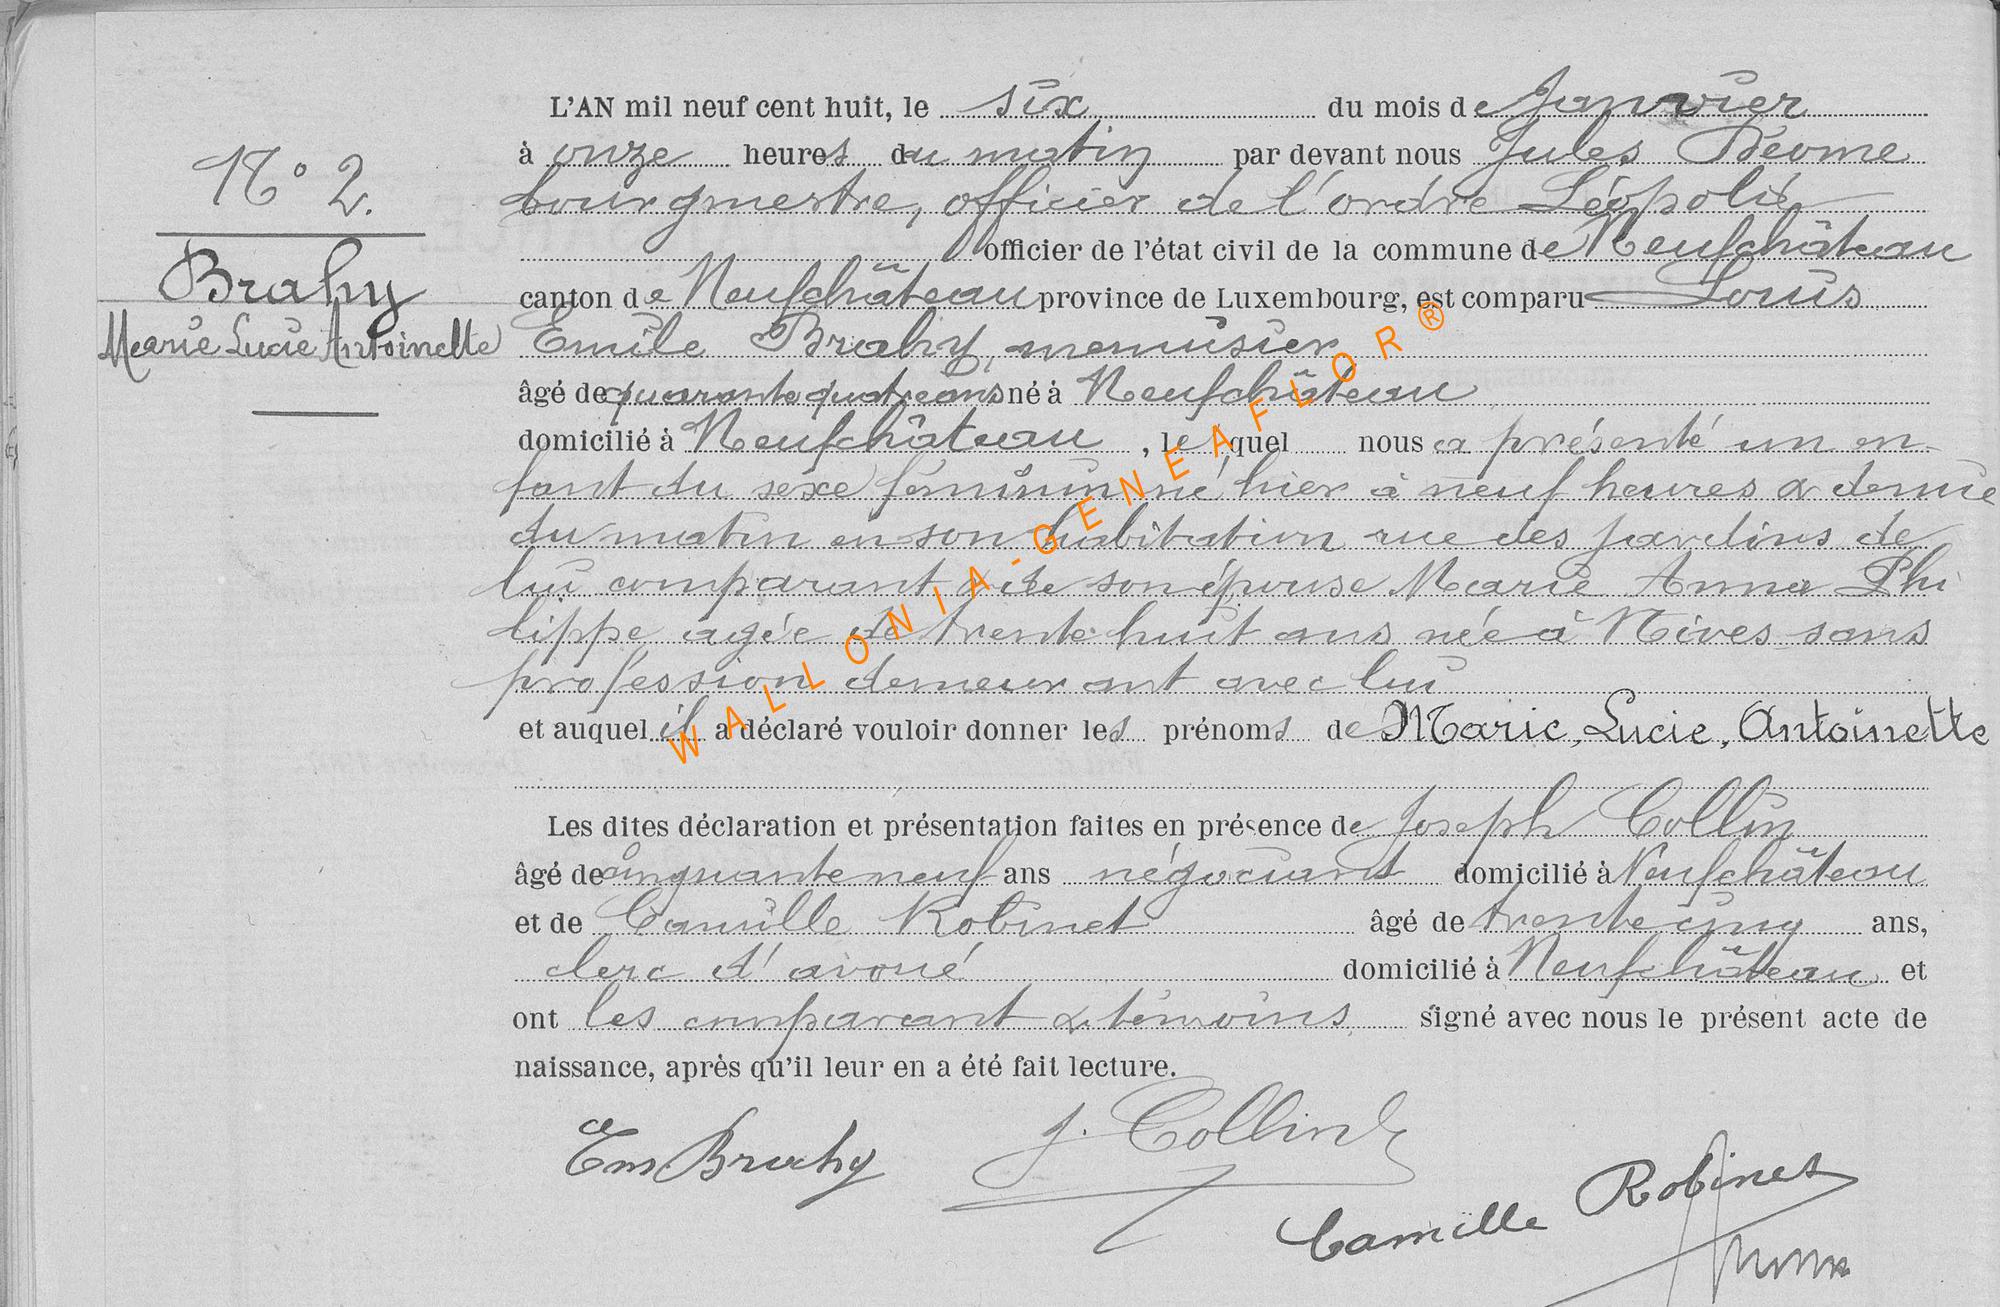 N° 2.
Brahy
Marie Lucie Antoinette
L'AN mil neuf cent huit, le six du mois de Janvier
à onze heures du matin par devant nous Jules Déome
bourgmestre, officier de l'ordre Léopold
officier de l'état civil de la commune de Neufchâteau
canton de Neufchâteau province de Luxembourg, est comparu Louis
Emile Brahy, menuisier
âgé de quarante quatre ans né à Neufchâteau
domicilié à Neufchâteau, lequel nous a présenté un en-
fant du sexe féminin né hier à neuf heures & demie
du matin en son habitation rue des jardins de
lui comparant & de son épouse Marie Anna Phi
lippe agée de trente huit ans née à Nives sans
profession demeurant avec lui
et auquel il a déclaré vouloir donner les prénoms de Marie, Lucie, Antoinette
Les dites déclaration et présentation faites en présence de Joseph Collin
âgé de cinquante neuf ans négociant domicilié à Neufchâteau
et de Camille Robinet âgé de trente cinq ans,
clerc d'avoué domicilié à Neufchâteau et
ont les comparant & témoins signé avec nous le présent acte de
naissance, après qu'il leur en a été fait lecture.
Em Brahy
J. Collin
Camille Robinet
WALLONIA-GENEAFLOR®